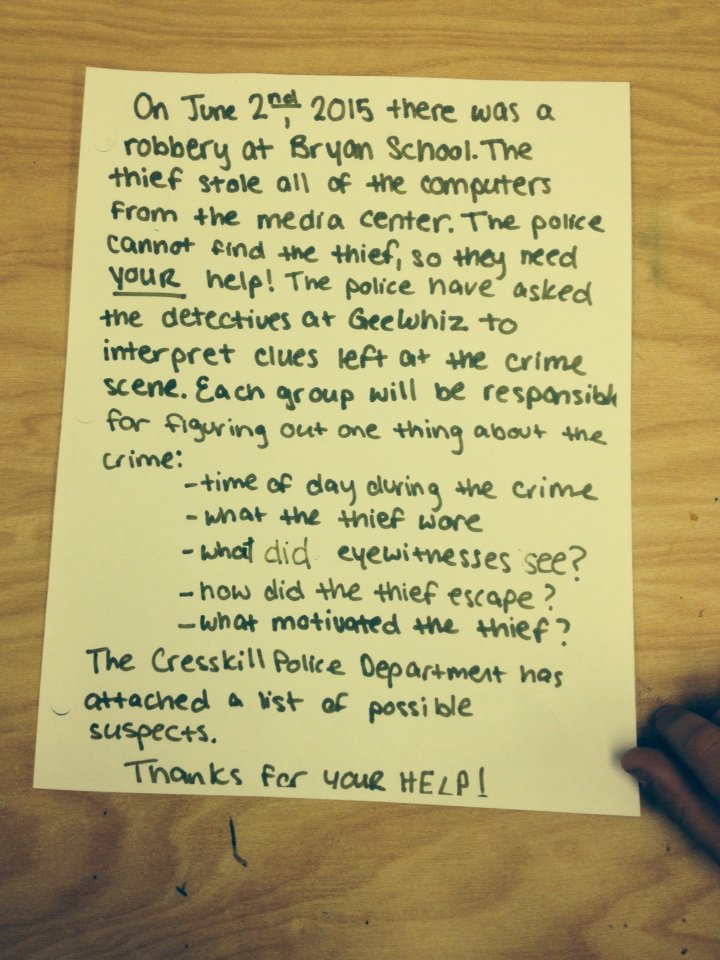 On June 2nd, 2015 there was a
robbery at Bryan School. The
thief stole all of the computers
from the media center. The police
cannot find the thief, so they need
YOUR help! The police have asked
the detectives at GeeWhiz to
interpret clues left at the crime
scene. Each group will be responsible
for figuring out one thing about the
crime:
-time of day during the crime
-what the thief wore
-what did eyewitnesses see?
-how did the thief escape?
-what motivated the thief?
The Cresskill Police Department has
attached a list of possible
suspects.
Thanks for your HELP!